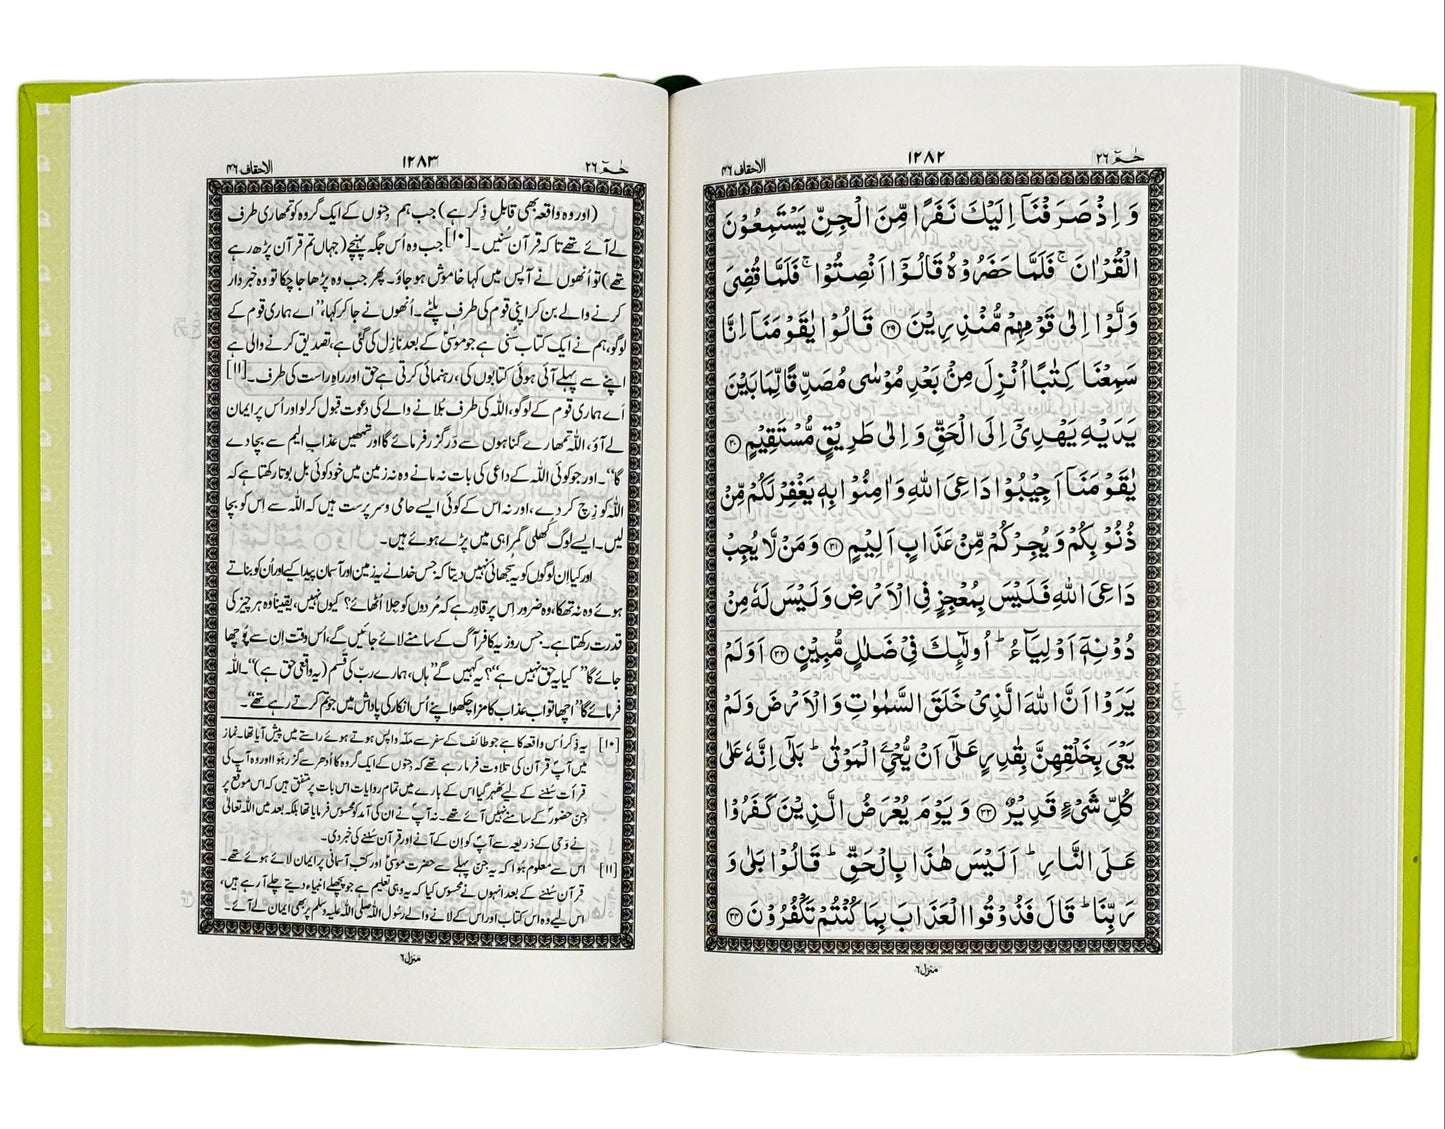 حٰمٓ ٢٦
١٢٨٢
الاحقاف ٤٦
وَ اِذْ صَرَفْنَاۤ اِلَيْكَ نَفَرًا مِّنَ الْجِنِّ يَسْتَمِعُوْنَ
الْقُرْاٰنَ ۚ فَلَمَّا حَضَرُوْهُ قَالُوْۤا اَنْصِتُوْا ۚ فَلَمَّا قُضِيَ
وَلَّوْا اِلٰى قَوْمِهِمْ مُّنْذِرِيْنَ ۟۲۹ قَالُوْا يٰقَوْمَنَاۤ اِنَّا
سَمِعْنَا كِتٰبًا اُنْزِلَ مِنْۢ بَعْدِ مُوْسٰى مُصَدِّقًا لِّمَا بَيْنَ
يَدَيْهِ يَهْدِيْۤ اِلَى الْحَقِّ وَ اِلٰى طَرِيْقٍ مُّسْتَقِيْمٍ ۟۳۰
يٰقَوْمَنَاۤ اَجِيْبُوْا دَاعِيَ اللّٰهِ وَ اٰمِنُوْا بِهٖ يَغْفِرْ لَكُمْ مِّنْ
ذُنُوْبِكُمْ وَ يُجِرْكُمْ مِّنْ عَذَابٍ اَلِيْمٍ ۟۳۱ وَ مَنْ لَّا يُجِبْ
دَاعِيَ اللّٰهِ فَلَيْسَ بِمُعْجِزٍ فِي الْاَرْضِ وَ لَيْسَ لَهٗ مِنْ
دُوْنِهٖۤ اَوْلِيَآءُ ؕ اُولٰٓئِكَ فِيْ ضَلٰلٍ مُّبِيْنٍ ۟۳۲ اَوَ لَمْ
يَرَوْا اَنَّ اللّٰهَ الَّذِيْ خَلَقَ السَّمٰوٰتِ وَ الْاَرْضَ وَ لَمْ
يَعْيَ بِخَلْقِهِنَّ بِقٰدِرٍ عَلٰۤى اَنْ يُّحْيِۦَ الْمَوْتٰى ؕ بَلٰۤى اِنَّهٗ عَلٰى
كُلِّ شَيْءٍ قَدِيْرٌ ۟۳۳ وَ يَوْمَ يُعْرَضُ الَّذِيْنَ كَفَرُوْا
عَلَى النَّارِ ؕ اَلَيْسَ هٰذَا بِالْحَقِّ ؕ قَالُوْا بَلٰى وَ
رَبِّنَا ؕ قَالَ فَذُوْقُوا الْعَذَابَ بِمَا كُنْتُمْ تَكْفُرُوْنَ ۟۳۴
منزل ٦
حٰمٓ ٢٦
١٢٨٣
الاحقاف ٤٦
(اور وہ واقعہ بھی قابلِ ذِکر ہے) جب ہم جِنّوں کے ایک گروہ کو تمھاری طرف
لے آئے تھے تاکہ قرآن سُنیں۔[۱۰] جب وہ اُس جگہ پہنچے (جہاں تم قرآن پڑھ رہے
تھے) تو اُنھوں نے آپس میں کہا خاموش ہو جاؤ۔ پھر جب وہ پڑھا جا چکا تو وہ خبردار
کرنے والے بن کر اپنی قوم کی طرف پلٹے۔ اُنھوں نے جا کر کہا، ”اے ہماری قوم کے
لوگو، ہم نے ایک کتاب سُنی ہے جو موسٰیؑ کے بعد نازِل کی گئی ہے، تصدیق کرنے والی ہے
اپنے سے پہلے آئی ہوئی کتابوں کی، رہنمائی کرتی ہے حق اور راہِ راست کی طرف۔[۱۱]
اَے ہماری قوم کے لوگو، اللہ کی طرف بُلانے والے کی دعوت قبول کر لو اور اُس پر ایمان
لے آؤ، اللہ تمھارے گناہوں سے درگزر فرمائے گا اور تمھیں عذابِ الیم سے بچا دے
گا“۔ اور جو کوئی اللہ کے داعی کی بات نہ مانے وہ نہ زمین میں خود کوئی بل بوتا رکھتا ہے کہ
اللہ کو زِچ کر دے، اور نہ اس کے کوئی ایسے حامی و سرپرست ہیں کہ اللہ سے اِس کو بچا
لیں۔ ایسے لوگ کُھلی گمراہی میں پڑے ہوئے ہیں۔
اور کیا اِن لوگوں کو یہ سُجھائی نہیں دیتا کہ جس خدا نے یہ زمین اور آسمان پیدا کیے اور اُن کو بناتے
ہوئے وہ نہ تھکا، وہ ضرور اس پر قادر ہے کہ مُردوں کو جِلا اُٹھائے؟ کیوں نہیں، یقیناً وہ ہر چیز کی
قدرت رکھتا ہے۔ جس روز یہ کافر آگ کے سامنے لائے جائیں گے، اُس وقت اِن سے پُوچھا
جائے گا ”کیا یہ حق نہیں ہے“؟ یہ کہیں گے ”ہاں، ہمارے رب کی قَسم (یہ واقعی حق ہے)“۔ اللہ
فرمائے گا ”اچھا تو اب عذاب کا مزا چکھو اپنے اُس انکار کی پاداش میں جو تم کرتے رہے تھے“۔
[۱۰] یہ ذِکر اُس واقعہ کا ہے جو طائف کے سفر سے مکّہ واپس ہوتے ہوئے راستے میں پیش آیا تھا۔ نماز
میں آپؐ قرآن کی تلاوت فرما رہے تھے کہ جِنّوں کے ایک گروہ کا اُدھر سے گزر ہوا اور وہ آپؐ کی
قرأت سُننے کے لیے ٹھہر گیا اس کے بارے میں تمام روایات اس بات پر متفق ہیں کہ اس موقع پر
جِنّ حضورؐ کے سامنے نہیں آئے تھے۔ نہ آپؐ نے ان کی آمد کو محسوس فرمایا تھا بلکہ بعد میں اللہ تعالیٰ
نے وحی کے ذریعہ سے آپؐ کو اِن کے آنے اور قرآن سُننے کی خبر دی۔
[۱۱] اس سے معلوم ہُوا کہ یہ جِنّ پہلے سے حضرت موسٰیؑ اور کتبِ آسمانی پر ایمان لائے ہوئے تھے۔
قرآن سُننے کے بعد انہوں نے محسوس کیا کہ یہ وہی تعلیم ہے جو پچھلے انبیاء دیتے چلے آ رہے ہیں،
اس لیے وہ اس کتاب اور اس کے لانے والے رسُول اللہ صلی اللہ علیہ وسلم پر بھی ایمان لے آئے۔
منزل ٦